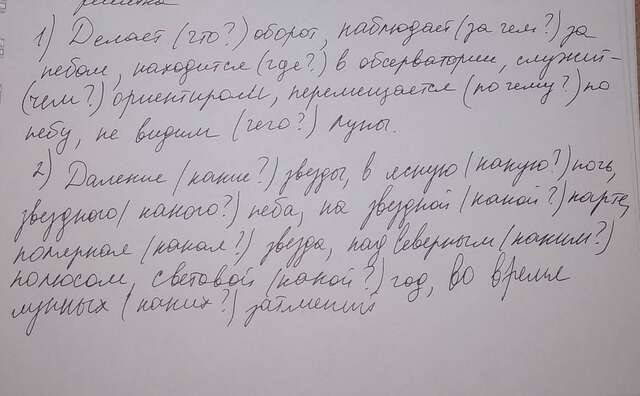 решётка
1) Делает (что?) оборот, наблюдает (за чем?) за
небом, находится (где?) в обсерватории, служит-
(чем?) ориентиром, перемещается (по чему?) по
небу, не видим (чего?) Луны.
2) Далекие (какие?) звезды, в ясную (какую?) ночь,
звездного (какого?) неба, на звездной (какой?) карте,
полярная (какая?) звезда, над Северным (каким?)
полюсом, световой (какой?) год, во время
лунных (каких?) затмений